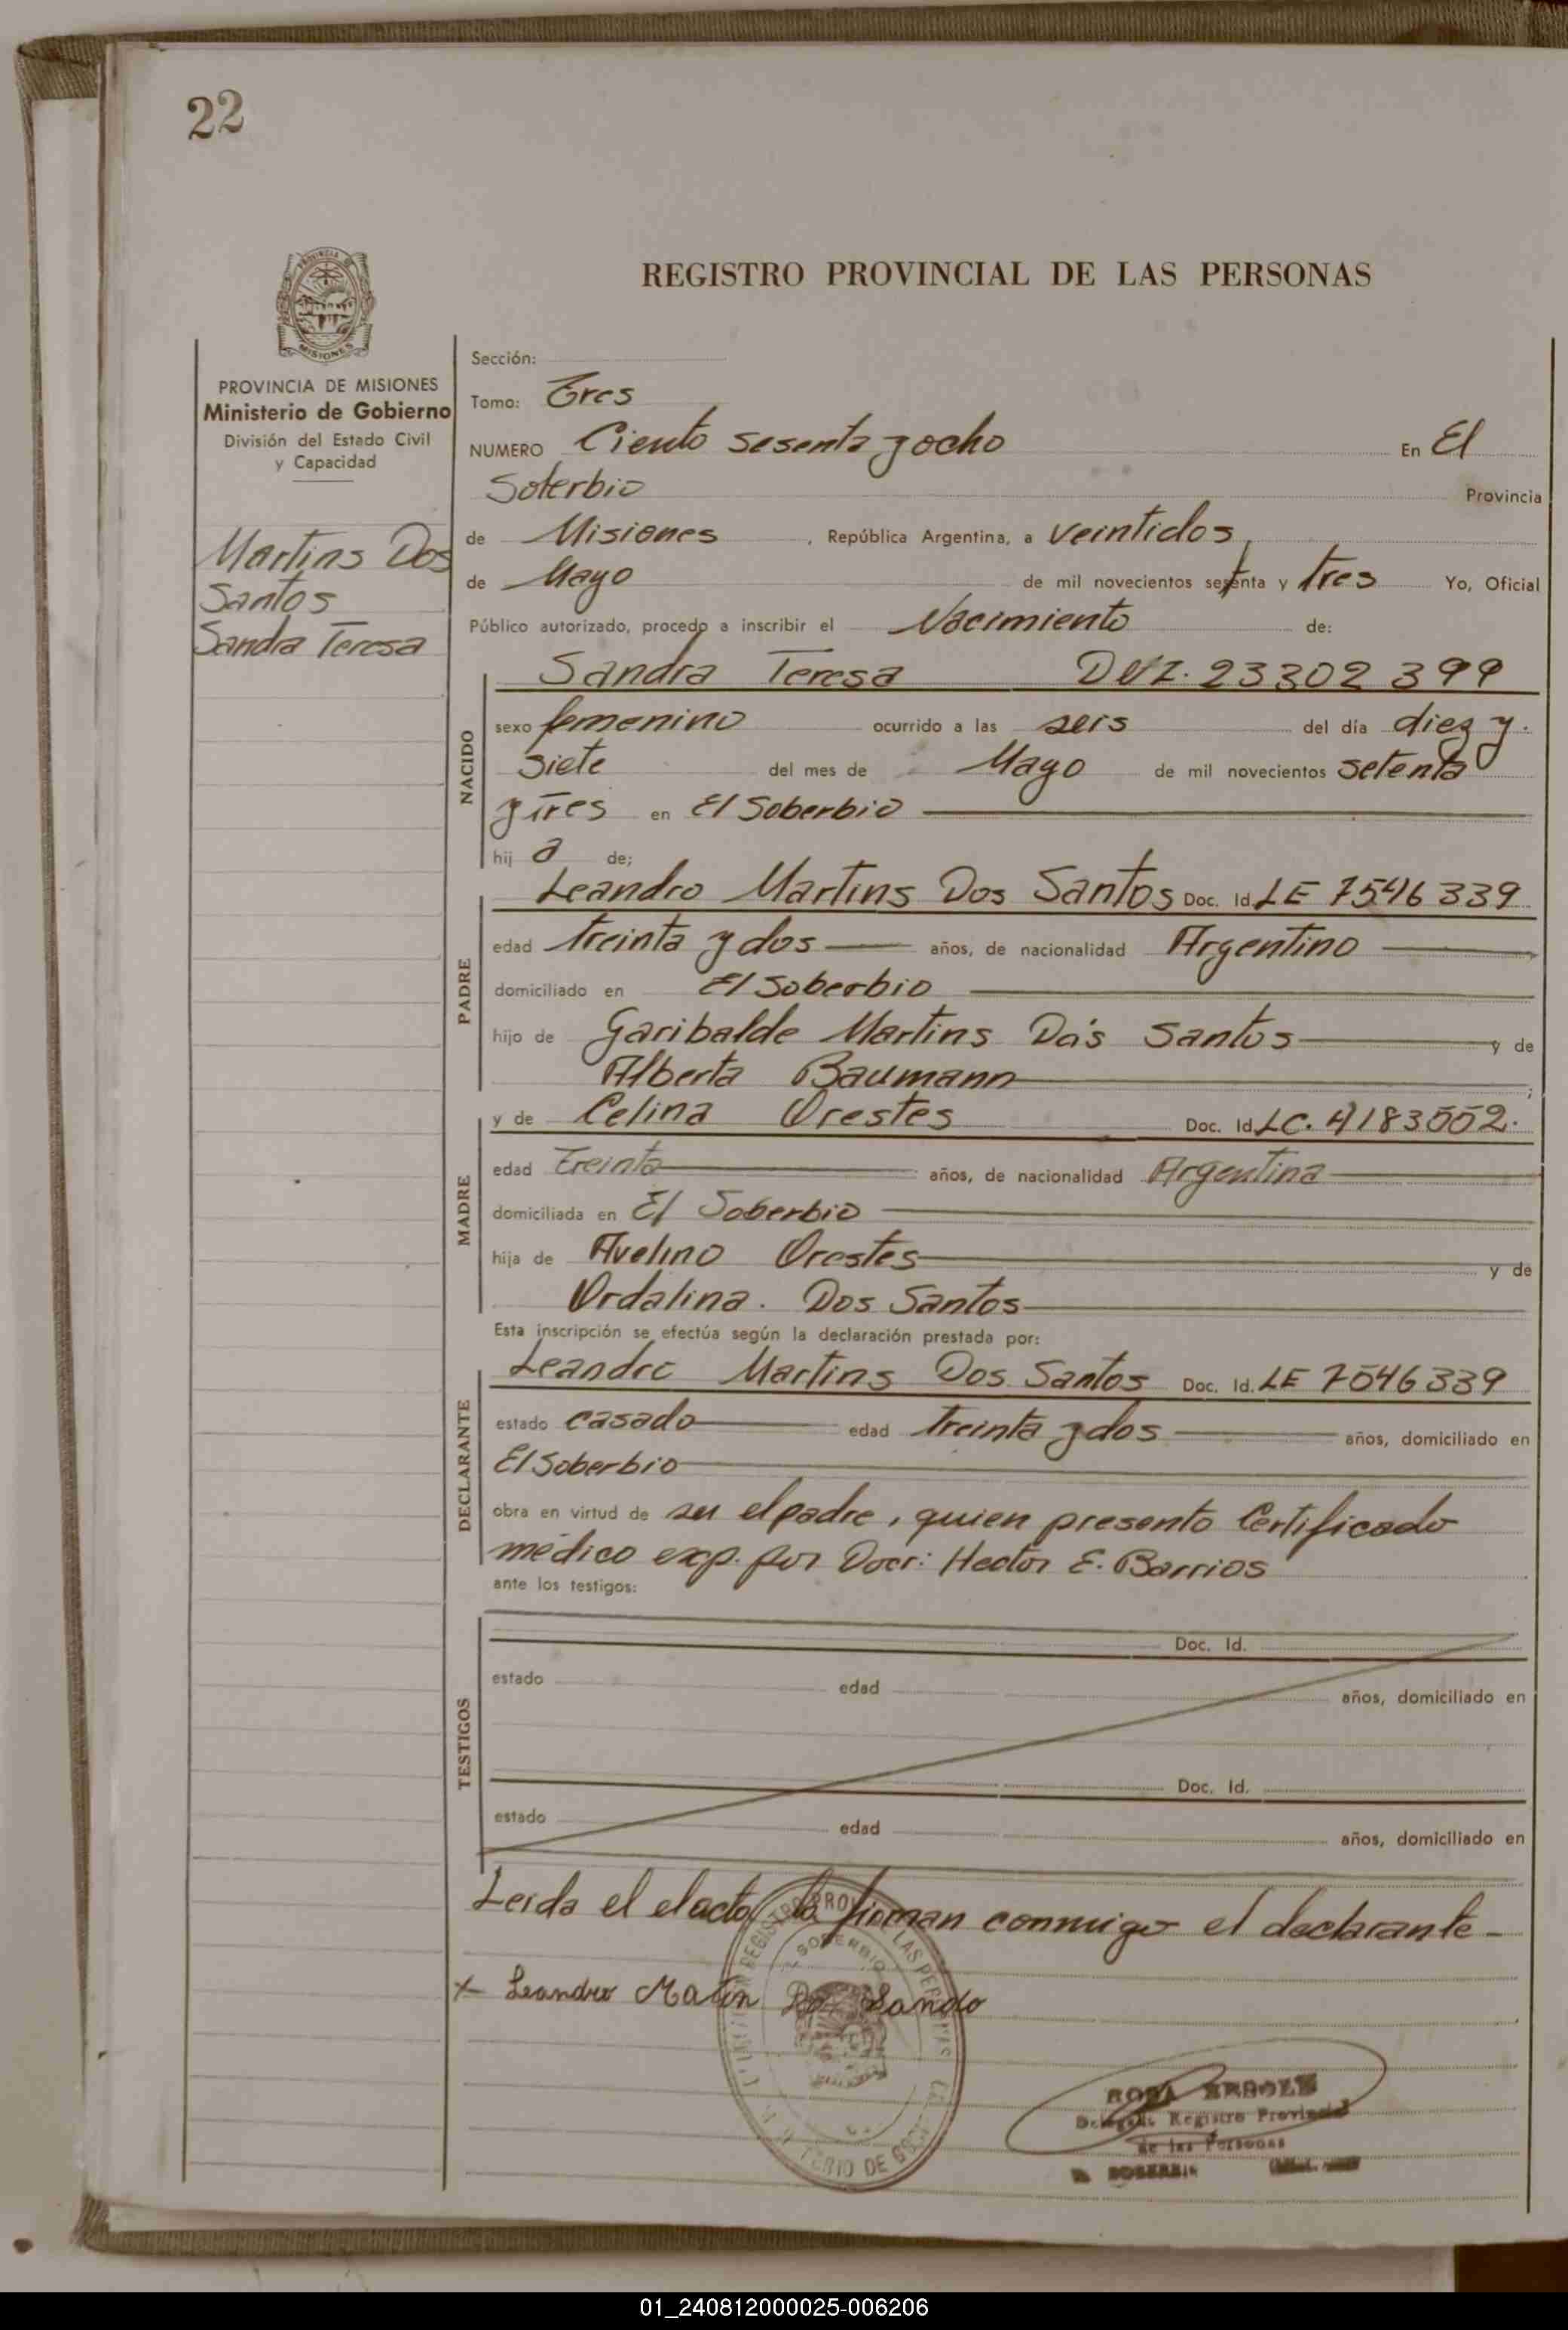 22
REGISTRO PROVINCIAL DE LAS PERSONAS
PROVINCIA DE MISIONES
Ministerio de Gobierno
División del Estado Civil
y Capacidad
Martins Dos
Santos
Sandra Teresa
Sección:
Tomo: Tres
NUMERO Ciento sesenta y ocho En El
Soterbio Provincia
de Misiones, República Argentina, a veintidos
de Mayo de mil novecientos setenta y tres Yo, Oficial
Público autorizado, procedo a inscribir el Nacimiento de:
NACIDO
Sandra Teresa 23302399
sexo femenino ocurrido a las seis del día diez y.
siete del mes de Mayo de mil novecientos setenta
y tres en El Soberbio
hij a de;
PADRE
Leandro Martins Dos Santos Doc. Id. LE 7546339
edad treinta y dos años, de nacionalidad Argentino
domiciliado en El Soberbio
hijo de Garibalde Martins Dos Santos y de
Alberta Baumann;
MADRE
y de Celina Orestes Doc. Id. LC. 4183552.
edad Treinta años, de nacionalidad Argentina
domiciliada en El Soberbio
hija de Avelino Orestes y de
Ordalina. Dos Santos
Esta inscripción se efectúa según la declaración prestada por:
DECLARANTE
Leandro Martins Dos Santos Doc. Id. LE 7546339
estado casado edad treinta y dos años, domiciliado en
El Soberbio
obra en virtud de ser el padre, quien presento Certificado
médico exp. por Docr: Hector E. Barrios
ante los testigos:
TESTIGOS
Doc. Id.
estado edad años, domiciliado en
Doc. Id.
estado edad años, domiciliado en
Leida el el acta la firman conmigo el declarante
x Leandro Matin Do Sando
ROSA
Delegada Registro Provincial
de las Personas
SOBERBIO
01_240812000025-006206